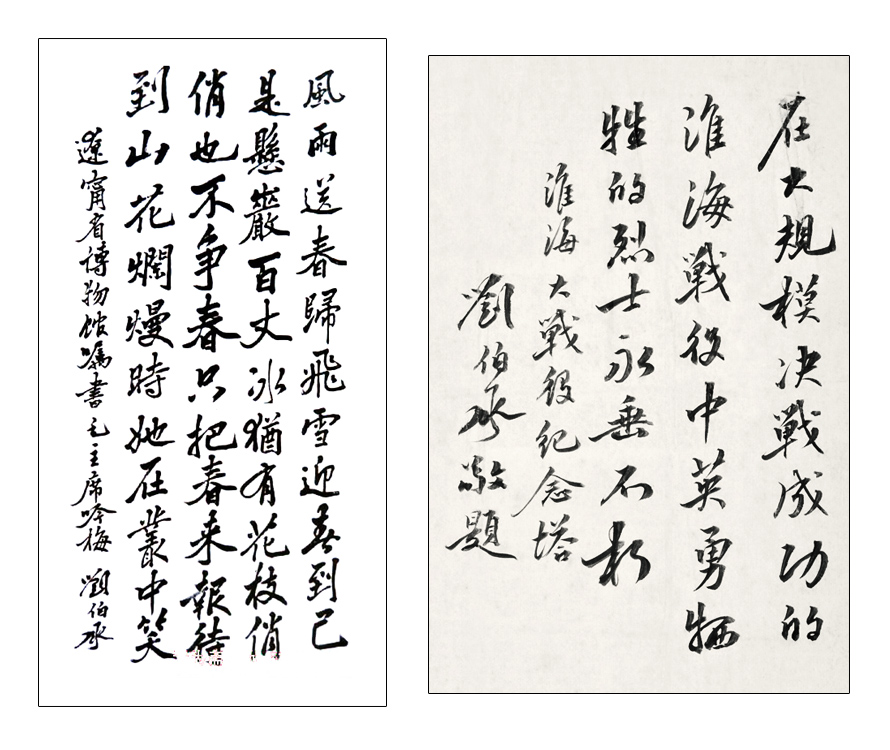 風雨送春歸飛雪迎春到已
是懸巖百丈冰猶有花枝俏
俏也不争春只把春来報待
到山花爛熳時她在叢中笑
遼甯省博物馆嘱書毛主席咏梅 劉伯承
在大規模决戰成功的
淮海戰役中英勇牺
牲的烈士永垂不朽
淮海大戰役紀念塔
劉伯承敬題